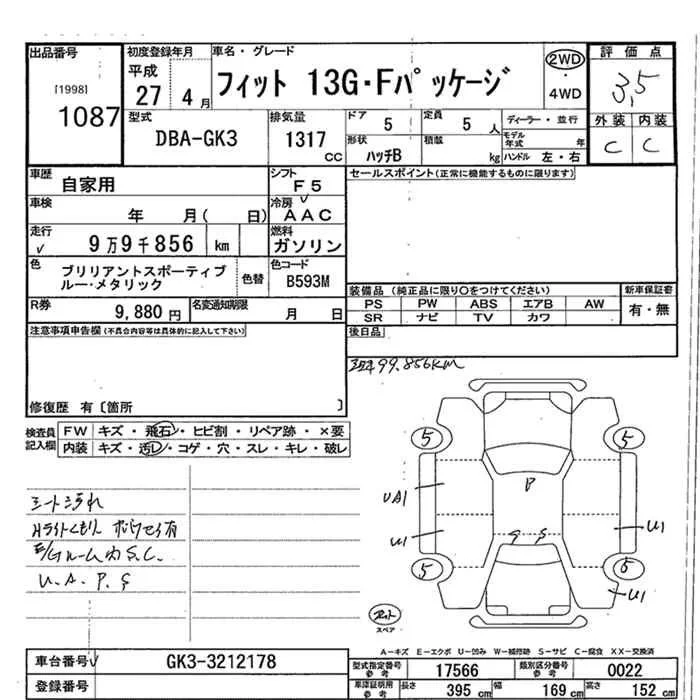 出品番号
[1998]
1087
初度登録年月
平成
27 4月
車名・グレード
フィット 13G・Fパッケージ
2WD
・
4WD
評価点
3,5
外装 内装
C C
型式
DBA-GK3
排気量
1317
cc
ドア
5
定員
5 人
ディーラー・並行
形状
ハッチB
積載
kg
モデル年式 年
ハンドル 左・右
車歴
自家用
シフト
F5
セールスポイント(正常に機能するものに限ります)
車検
年 月( 日)
冷房
AAC
走行
9万9千856 km
燃料
ガソリン
色
ブリリアントスポーティブ
ルー・メタリック
色替
色コード
B593M
装備品(純正品に限り○をつけてください)
新車保証書
PS PW ABS エアB AW
SR ナビ TV カワ
有・無
R券
9,880 円
名変通知期限
月 日
後日品
注意事項申告欄(不具合内容等は具体的に記入して下さい)
修復歴 有〔箇所 〕
99.856KM
検査員
記入欄
FW キズ・飛石・ヒビ割・リペア跡・×要
内装 キズ・汚レ・コゲ・穴・スレ・キレ・破レ
シート汚れ
Hライトくもり
ルーム内 S.C.
U.A.P.S
5 5
B
UA1
U1 U1
9 S
5 5
U1
スペア
A-キズ E-エクボ U-凹み W-補修跡 S-サビ C-腐食 XX-交換済
車台番号 GK3-3212178
登録番号
型式指定番号
参考
17566
類別区分番号
参考
0022
車庫証明用
参考
長さ 395 cm 幅 169 cm 高さ 152 cm